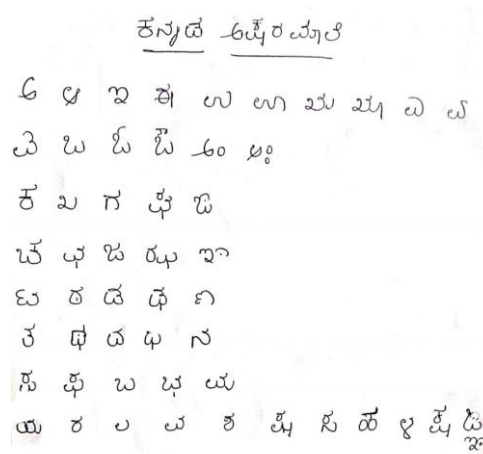 ಕನ್ನಡ ಅಕ್ಷರ ಮಾಲೆ
ಅ ಆ ಇ ಈ ಉ ಊ ಋ ೠ ಎ ಏ
ಐ ಒ ಓ ಔ ಅಂ ಅಃ
ಕ ಖ ಗ ಘ ಙ
ಚ ಛ ಜ ಝ ಞ
ಟ ಠ ಡ ಢ ಣ
ತ ಥ ದ ಧ ನ
ಪ ಫ ಬ ಭ ಮ
ಯ ರ ಲ ವ ಶ ಷ ಸ ಹ ಳ ಕ್ಷ ಜ್ಞ